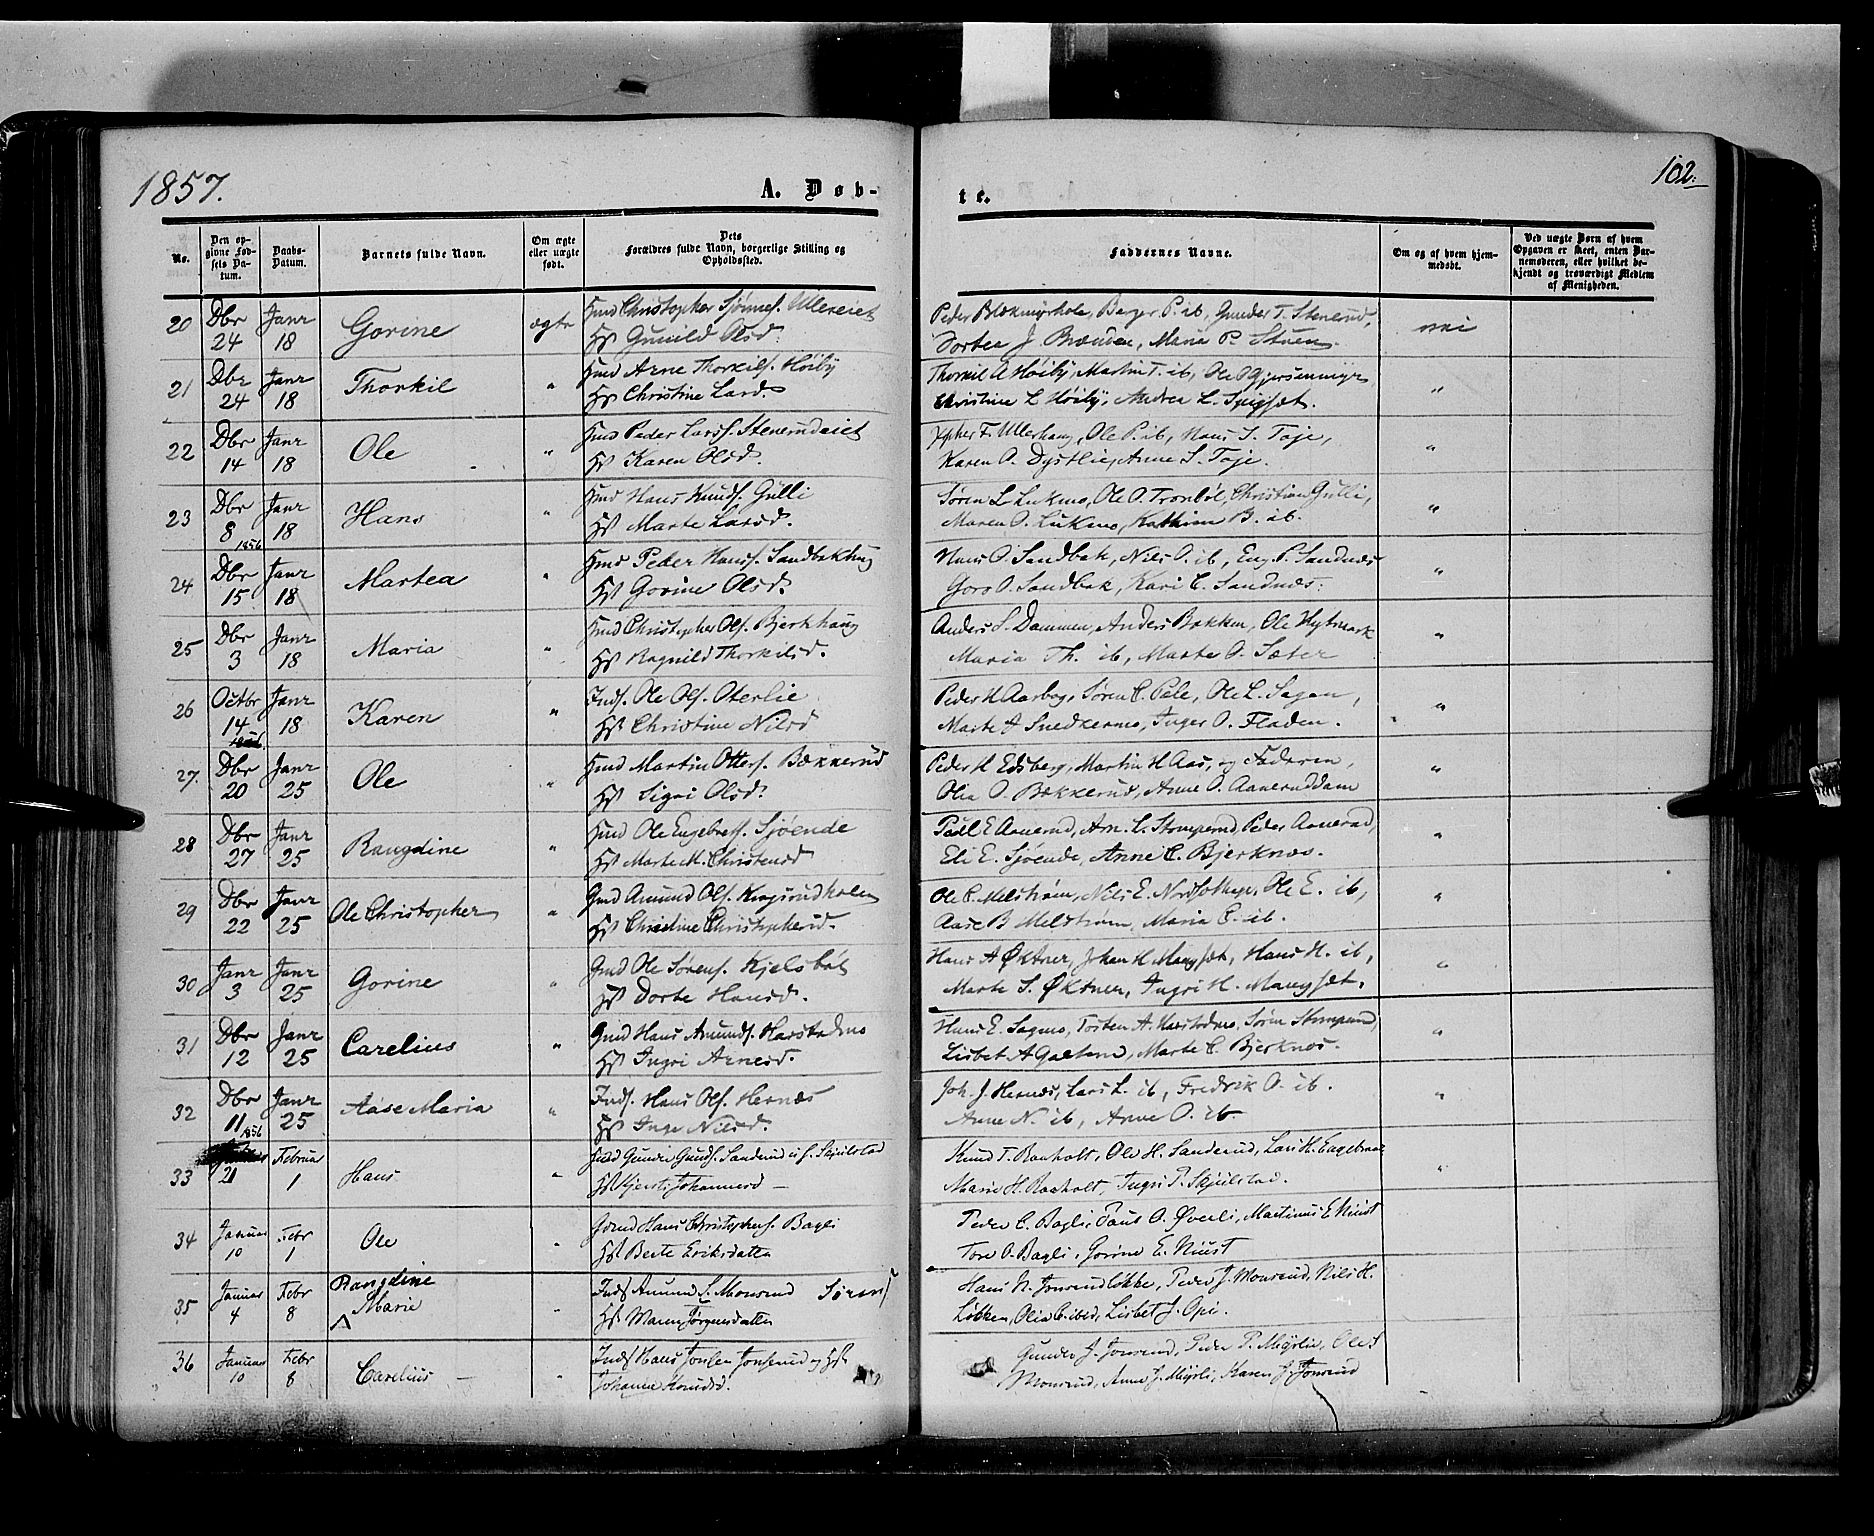 1857.
A. Døb-
te.
102.
No.
Den op-
givne Fød-
sels Da-
tum.
Daabs-
Datum.
Barnets fulde Navn.
Om ægte
eller uægte
født.
Dets
Forældres fulde Navn, borgerlige Stilling og
Opholdssted.
Faddernes Navne.
Om og af hvem hjem-
medøbt.
Ved uægte Børn af hvem
Opgaven er skeet, enten Bar-
nemoderen, eller hvilket be-
kjendt og troværdigt Medlem
af Menigheden.
20 Dbr 24 Janr 18 Gorine ægte
Hmd Christopher Ullereiet
Hst Gunild Olsd.
Berger P. ib, Gunder T. Stenerud,
Dortea J. Brænden, Maria P. Stuen. nei
21 Dbr 24 Janr 18 Thorkil "
Hmd Arne Thorkils. Høiby
Hst Christine Larsd.
Thorkil A Høiby, Martin T. ib, Ole
Christine L Høiby, Andrea L. "
22 Dbr 14 Janr 18 Ole "
Hmd Peder Larss. Stenerudeiet
Hst Karen Olsd.
Ullerhaug, Ole P. ib, Hans S. Toje,
Karen O. Dystlie, Anne S. Toje. "
23 Dbr 8 1856 Janr 18 Hans "
Hmd Hans Knuds. Gulli
Hst Marte Larsd.
Søren L Lukmo, Ole O. Tronbøl, Christian Gulli,
Maren O. Lukmo, B. ib. "
24 Dbr 15 Janr 18 Martea "
Hmd Peder Hanss. Sandbakhug
Hst Gorine Olsd.
Hans O. Sandbak, Nils O. ib, Eng. P. Sandnæs
Goro O. Sandbak, Kari C. Sandnæs. "
25 Dbr 3 Janr 18 Maria "
Hmd Christopher Ols. Bjerkhaug
Hst Ragnild Thorkilsd.
Anders S. Dammen, Anders Bakken, Ole
Maria Th. ib, Marte O. Sæter "
26 Octbr 14 Janr 18 Karen "
Inds. Ole Ols. Oterlie
Hst Christine Nilsd
Peder H Aarbog, Søren C. Pale, Ole L. Sagen,
Marte A Snedkermo, Inger O. Fladen. "
27. Dbr 20 Janr 25 Ole "
Hmd Martin Otters. Bækkerud
Hst Sigri Olsd.
Peder H Edsberg, Martin H Aas, og Faderen,
Olia O. Bækkerud, Anne O. Aaneruddam "
28 Dbr 27 Janr 25 Rangdine "
Hmd Ole Engebrets. Sjøende
Hst Marte M. Christensd
Paal E Aanerud, Arn. L. Stomperud, Peder Aanerud,
Eli E. Sjøende, Anne C. Bjerknæs. "
29 Dbr 22 Janr 25 Ole Christopher "
Gmd Amund Ols.
Hst Christine Christophersd.
Ole C. Melstrøm, Nils E. Ole E. ib,
Aase B Melstrøm, Maria C. ib. "
30 Janr 3 Janr 25 Gorine "
Gmd Ole Sørens. Kjelsbøl
Hst Dorte Hansd.
Hans A Øktner, Johan H Mangset, Hans H. ib,
Marte S. Øktner, Ingri H. Mangset. "
31 Dbr 12 Janr 25 Carelius "
Gmd Hans Amunds. Harstadmo
Hst Ingri Arnesd.
Hans E. Sagmo, Torsten A. Harstadmo, Søren Stomperud,
Lisbet A Marte C. Bjerknæs. "
32 Dbr 11 1856 Janr 25 Aase Maria "
Inds. Hans Ols. Hernæs
Hst Inge Nilsd.
Joh. J. Hernæs, Lars L. ib, Fredrik O. ib.
Anne N. ib, Anne O. ib. "
33 21 Februar 1 Hans "
Hmd Gunder Gunds. Sanderud Skjulstad
Hst Kjersti Johannesd —
Knud T. Raaholt, Ole H. Sanderud, Lars H.
Marie H. Raaholt, Ingri P. Skjulstad. "
34 Januar 10 Febr 1 Ole "
Gmd Hans Christophers. Bagli
Hst Berte Eriksdatter
Peder C. Bagli, Paul O. Øverli, Martinus E Niust
Tore O. Bagli, Gorine E. Niust
35 Januar 4 Febr 8 Rangdine Marie "
Inds Amund S. Monsrud Sørens
Hst Maren Jørgensdatter
Hans N. Jonsrudløkke, Peder J. Monsrud, Nils H.
Løkken, Olia C. ibid, Lisbet J. Opi.
36 Januar 10 Febr 8 Carelius — "
Inds Hans Jonsen Jonsrud og Hst
Johanne Knudsd.
Gunder J. Jonsrud, Peder P. Ole S
Monsrud, Anne J. Karen J. Jonsrud